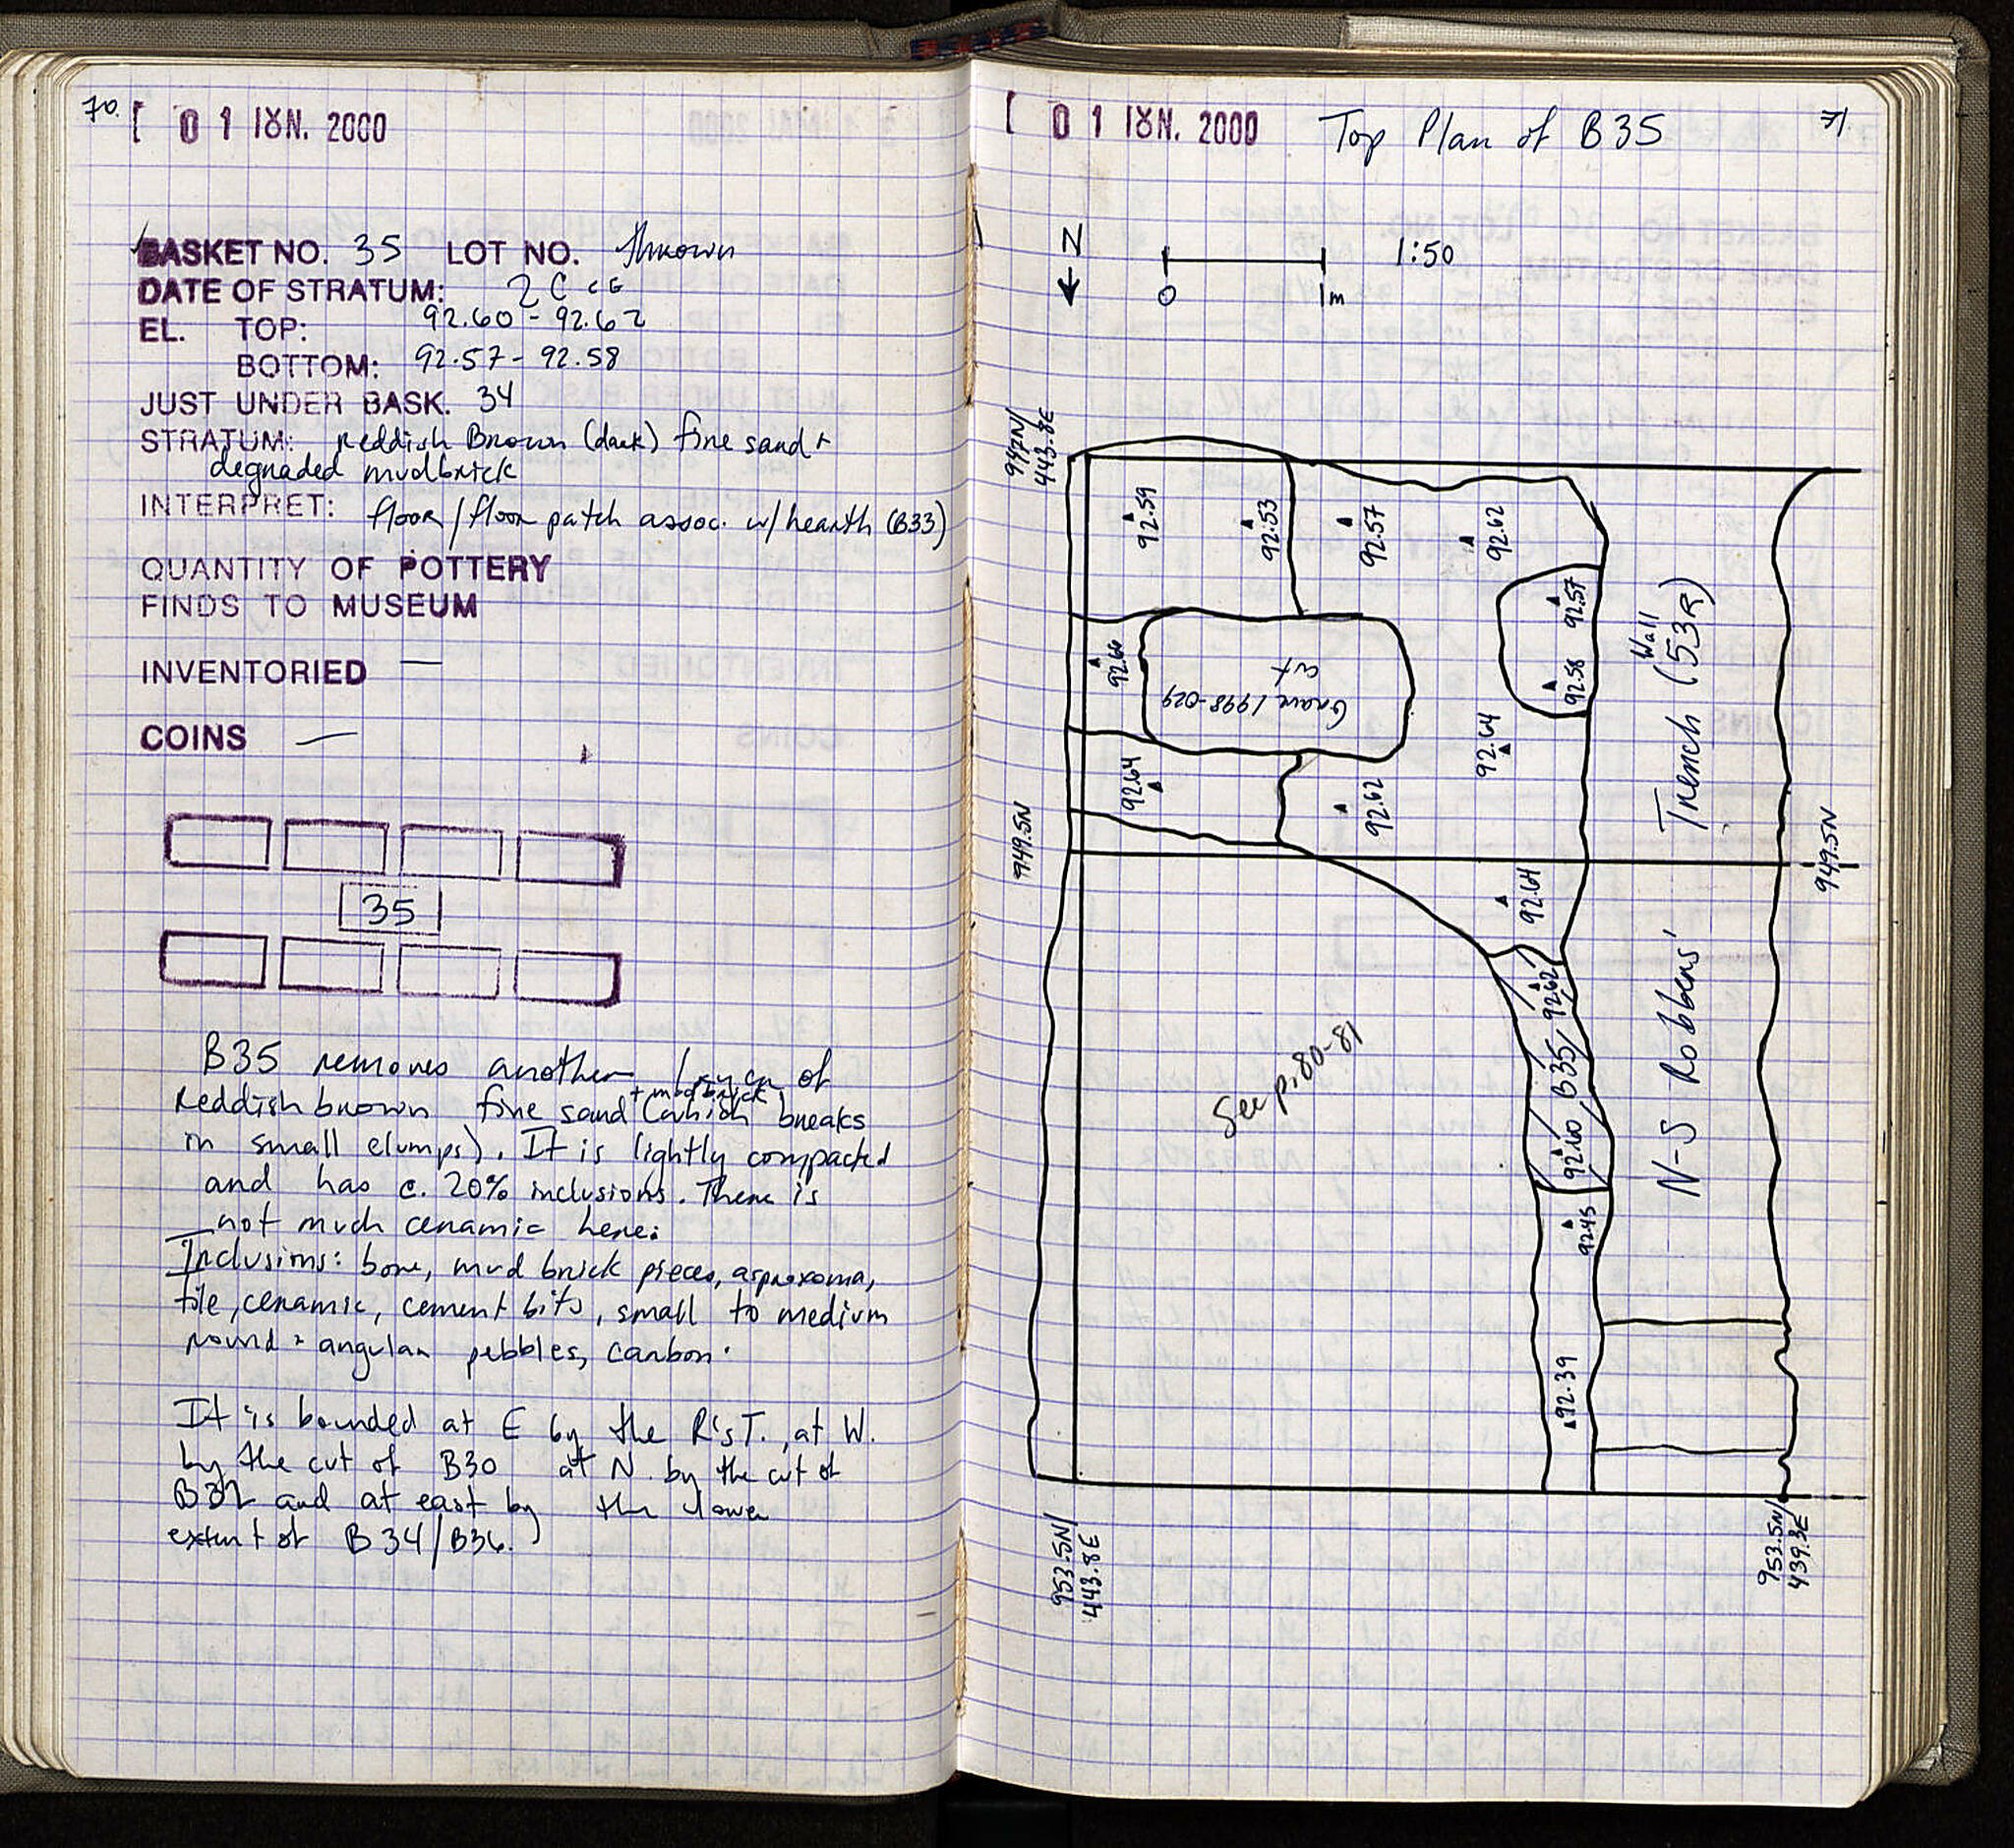 70.
[ 01 ΙΟΥΝ. 2000
BASKET NO. 35 LOT NO. thrown
DATE OF STRATUM: 2 C CE
EL. TOP: 92.60 - 92.62
BOTTOM: 92.57 - 92.58
JUST UNDER BASK. 34
STRATUM: Reddish Brown (dark) fine sand +
degraded mudbrick
INTERPRET: floor/floor patch assoc. w/ hearth (B33)
QUANTITY OF POTTERY
FINDS TO MUSEUM
INVENTORIED —
COINS —
35
B35 removes another layer of
reddish brown fine sand + mudbrick (which breaks
in small clumps). It is lightly compacted
and has c. 20% inclusions. There is
not much ceramic here.
Inclusions: bone, mud brick pieces, asproxoma,
tile, ceramic, cement bits, small to medium
round + angular pebbles, carbon.
It is bounded at E by the R'sT., at W.
by the cut of B30 at N. by the cut of
B32 and at east by the lower
extent of B34/B36.
71.
[ 01 ΙΟΥΝ. 2000 Top Plan of B35
N
0 1m 1:50
947N/
443.8E
92.59
92.53
92.57
92.62
92.57
92.58
92.60
Grave 1998-029
cut
92.64
92.64
92.62
Wall
Trench (53R)
949.5N
949.5N
92.64
92.62
B35
92.60
N-S Robbers'
See p. 80-81
92.45
92.39
953.5N/
443.8E
953.5N/
439.3E